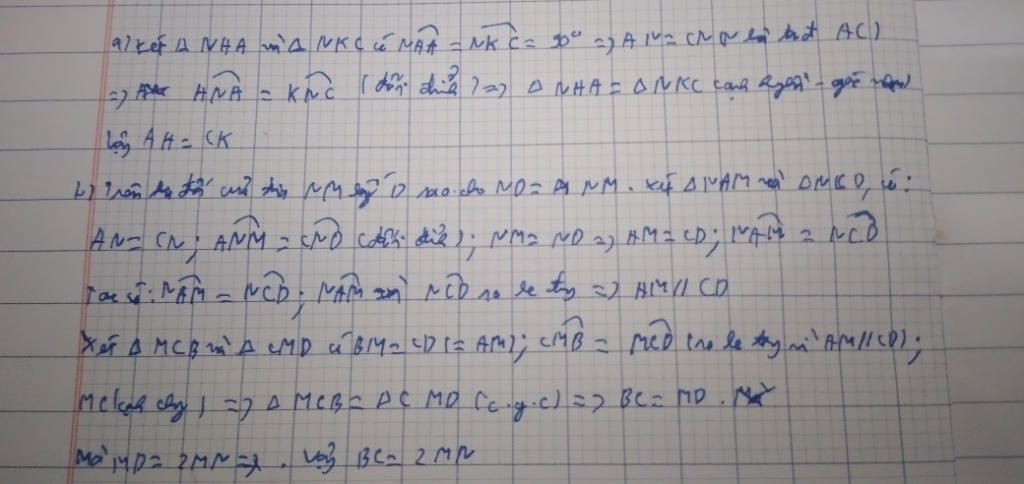 a) Xét Δ NHA và Δ NKC có NĤA = NK̂C = 90° => AN = CN (N là tđ AC)
=> HN̂A = KN̂C (đối đỉnh) => Δ NHA = Δ NKC (cạnh huyền - góc nhọn)
Vậy AH = CK
b) Trên tia đối của tia NM lấy D sao cho ND = NM. Xét Δ NAM và Δ NCD, có:
AN = CN; AN̂M = CN̂D (đối đỉnh); NM = ND => AM = CD; NÂM = NĈD
Ta có: NÂM = NĈD; NÂM và NĈD so le trong => AM // CD
Xét Δ MCB và Δ CMD có BM = CD (= AM); CM̂B = MĈD (so le trong vì AM // CD);
MC (cạnh chung) => Δ MCB = Δ CMD (c.g.c) => BC = MD.
Mà MD = 2MN => . Vậy BC = 2MN